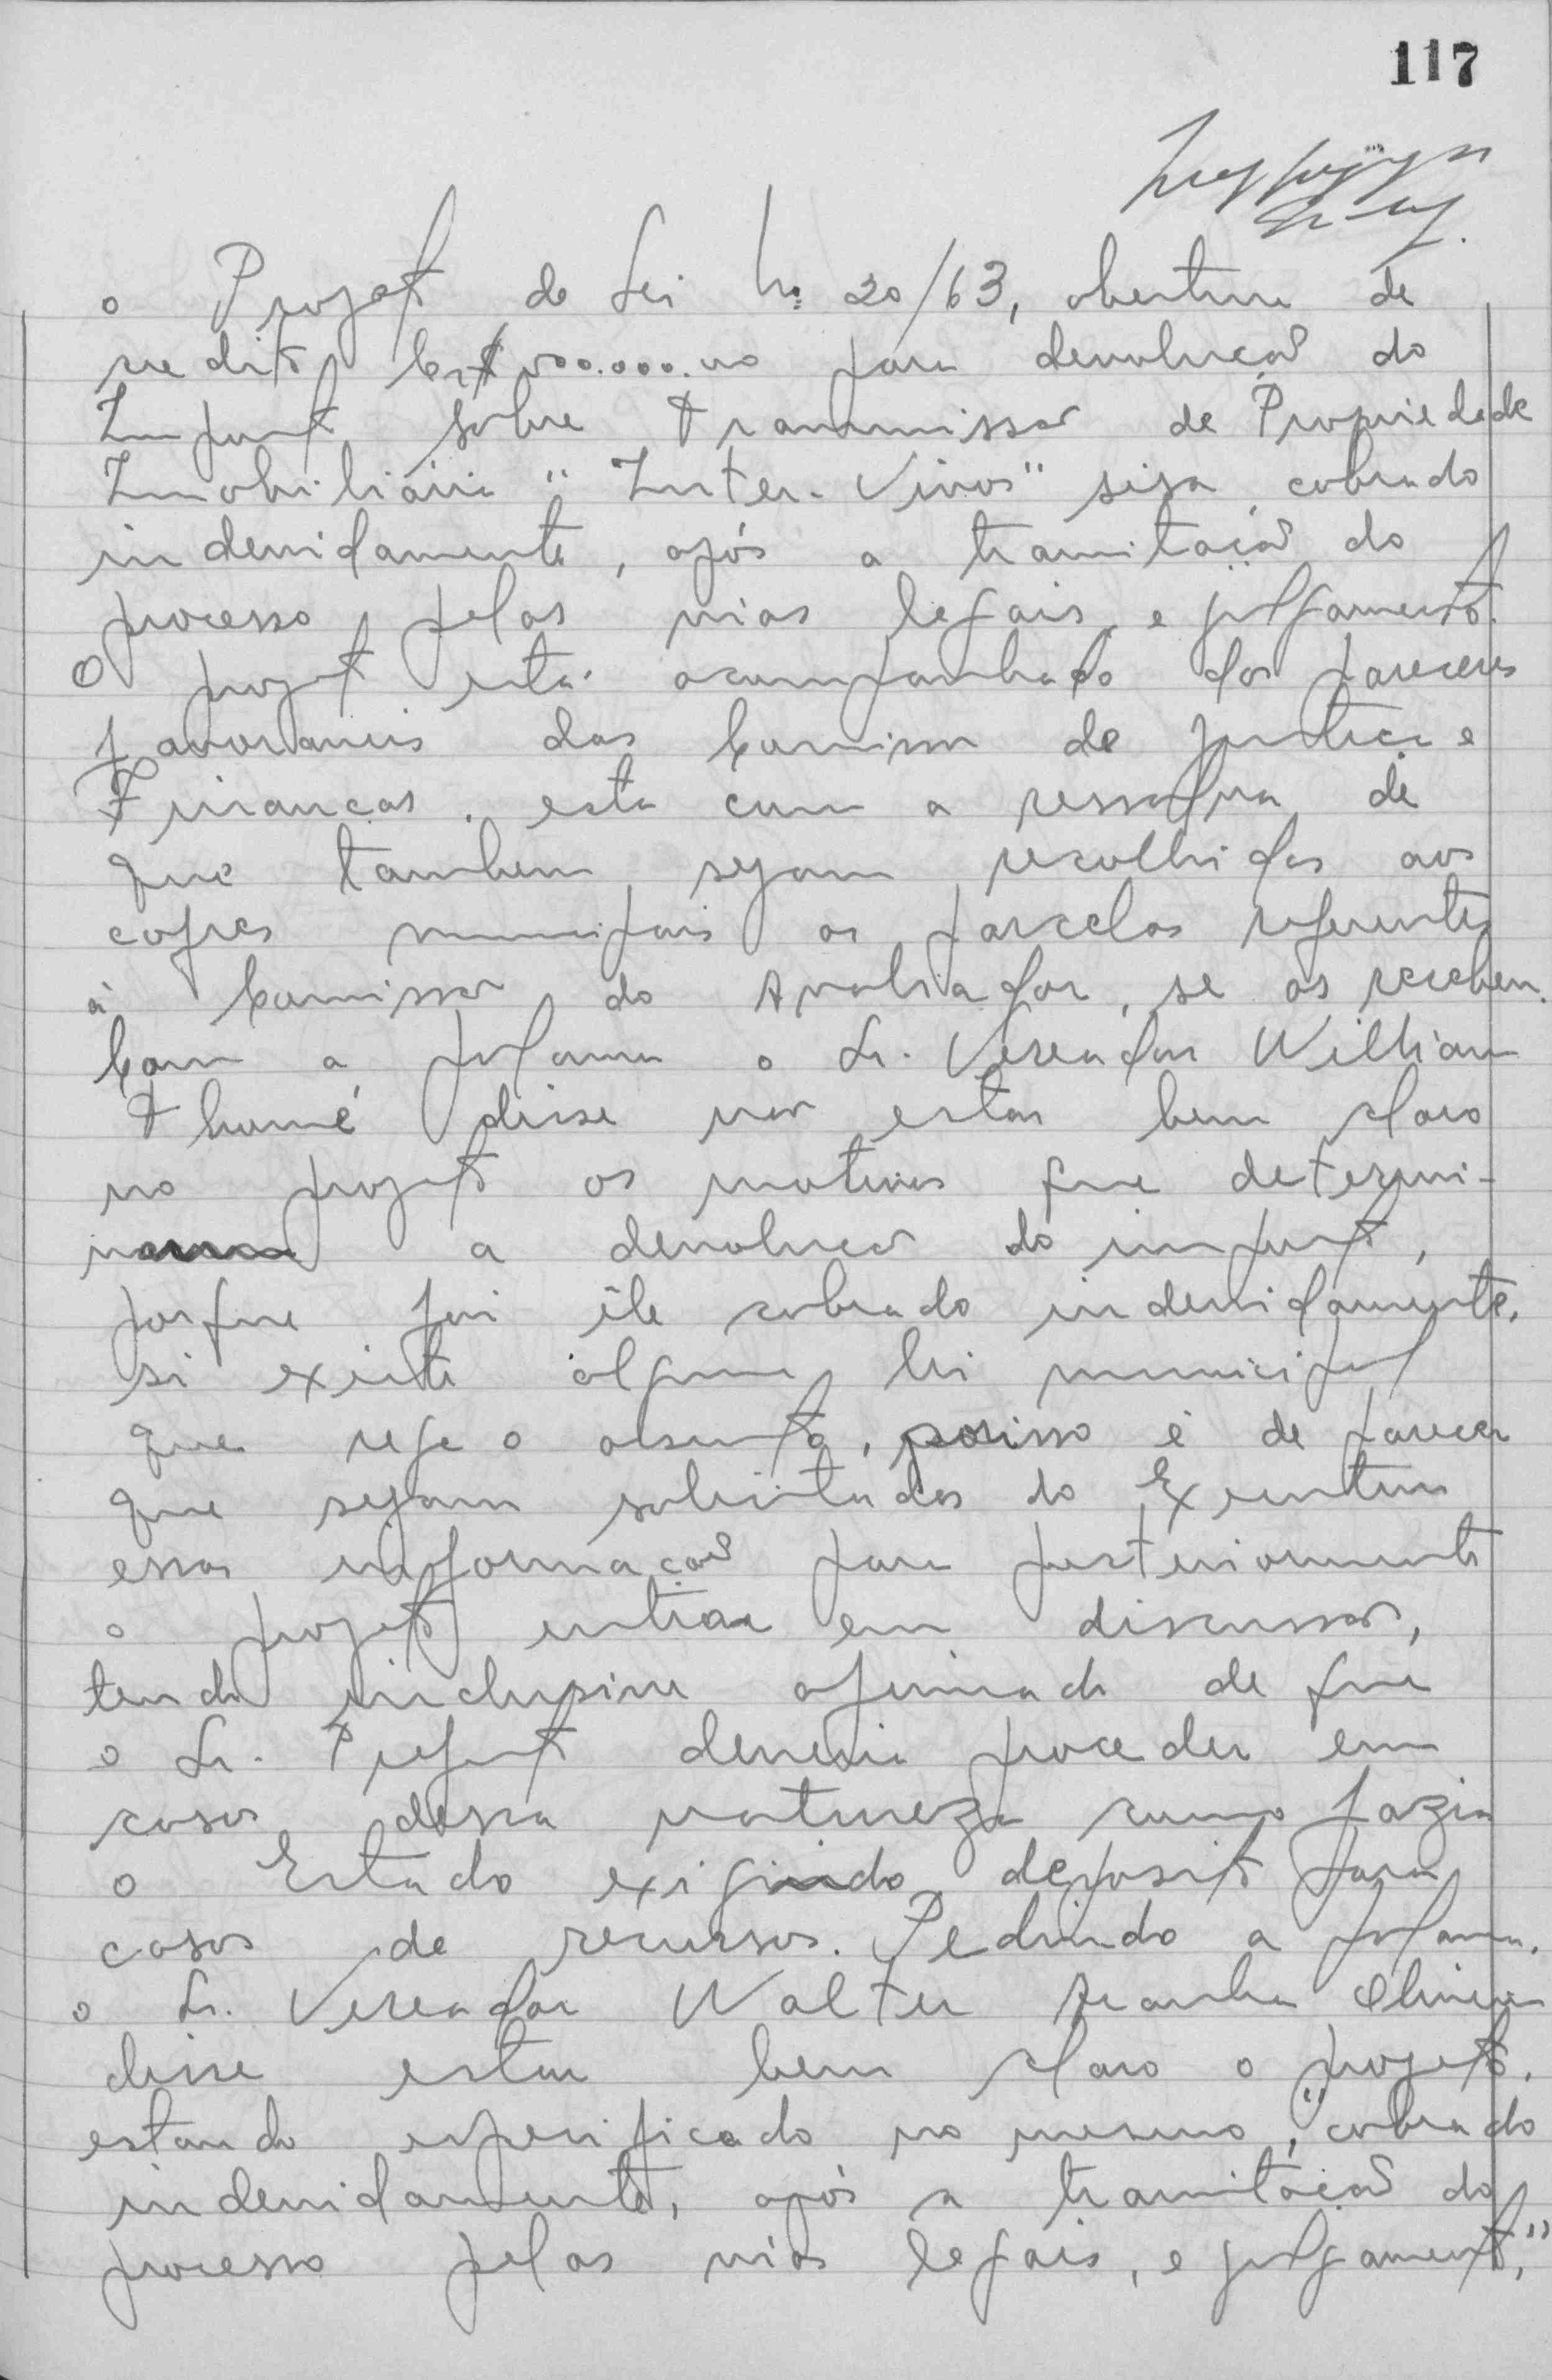 117
o Projeto de Lei Nº 20/63, abertura de
credito Cr$ 500.000.00 para devolução do
Imposto sobre transmissão de Propriedade
Imobiliária "Inter-Vivos" sisa, cobrado
indevidamente, após a tramitação do
processo pelas vias legais, e julgamento.
O projeto está acompanhado dos pareceres
favoraveis das Comissão de justiça e
Finanças. esta com a ressalva de
que tambem sejam recolhidas aos
cofres municipais as parcelas referentes
à Comissão do Avaliador, se as receben.
Com a palavra o Sr. Vereador Willian
Thomé disse não estar bem claro
no projeto os motivos que determi-
naram a devolução do imposto,
porque foi êle cobrado indevidamente,
si existe alguma lei municipal
que rege o assunto, porisso é de parecer
que sejam solicitadas do Executivo
essas informação para posteriormente
o projeto entrar em discussão,
tendo inclusive afirmado de que
o Sr. Prefeito deveria proceder em
casos dessa natureza como fazia
o Estado exigindo deposito para
casos de recursos. Pedindo a palavra,
o Sr. Vereador Walter Aranha Oliveira
disse estar bem claro o projeto,
estando especificado no mesmo, "cobrado
indevidamente, após a tramitação do
processo pelas vias legais, e julgamento,"